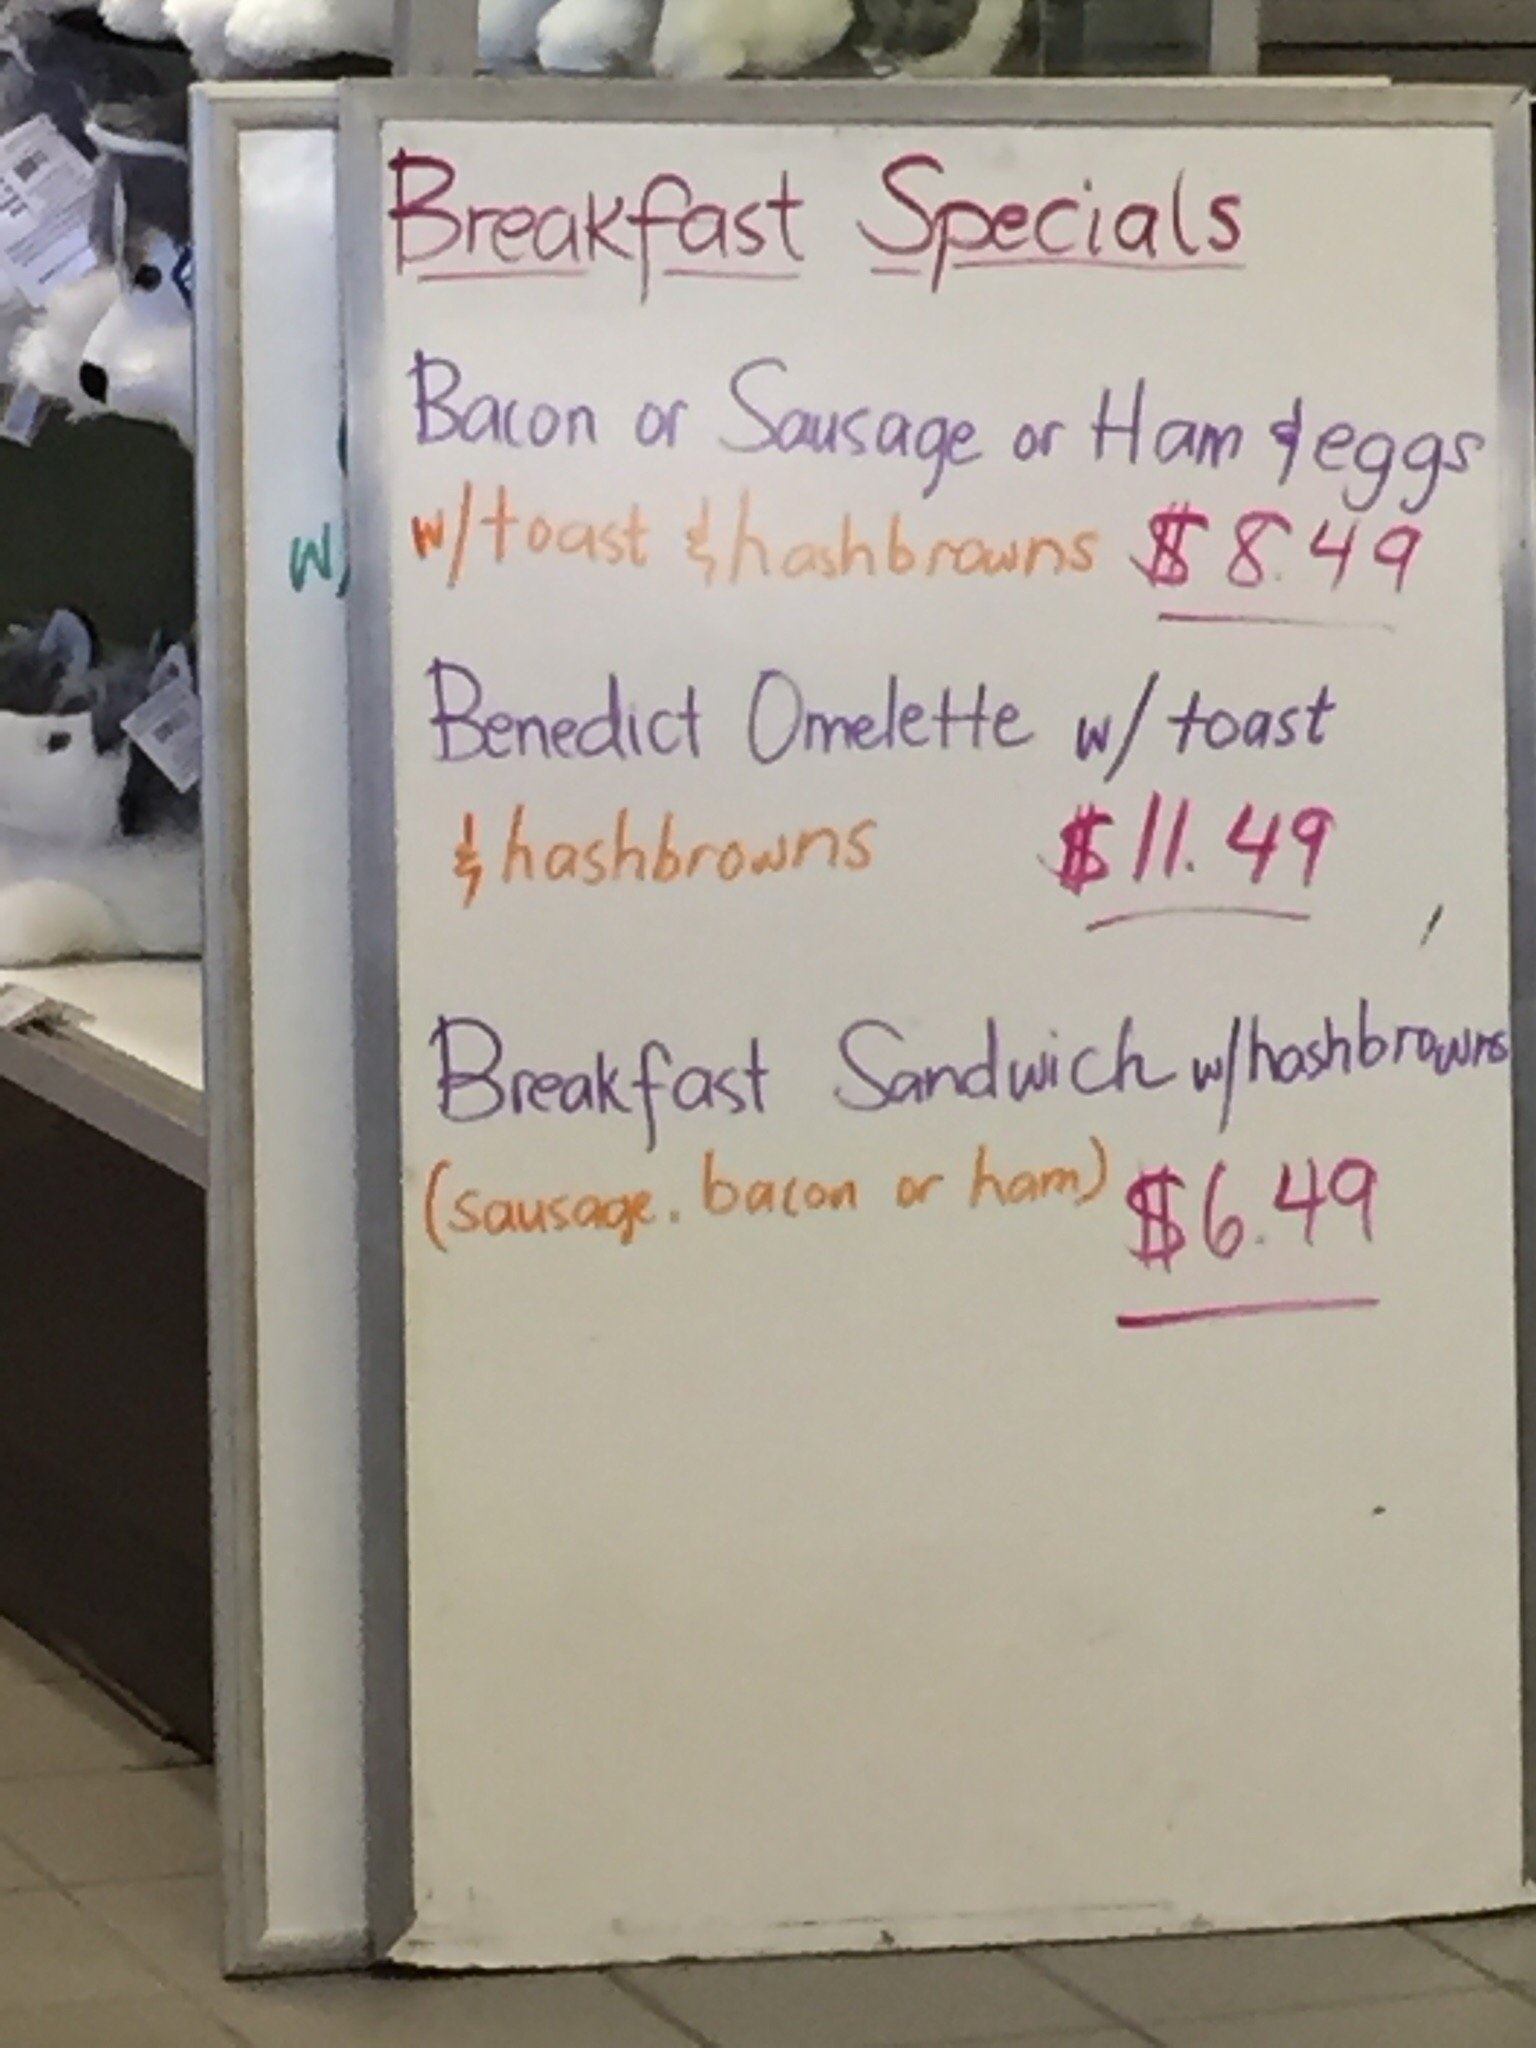 Breakfast Specials
Bacon or Sausage or Ham & eggs
w/toast & hashbrowns $8.49
Benedict Omelette w/ toast
& hashbrowns $11.49
Breakfast Sandwich w/hashbrowns
(sausage. bacon or ham) $6.49
w/